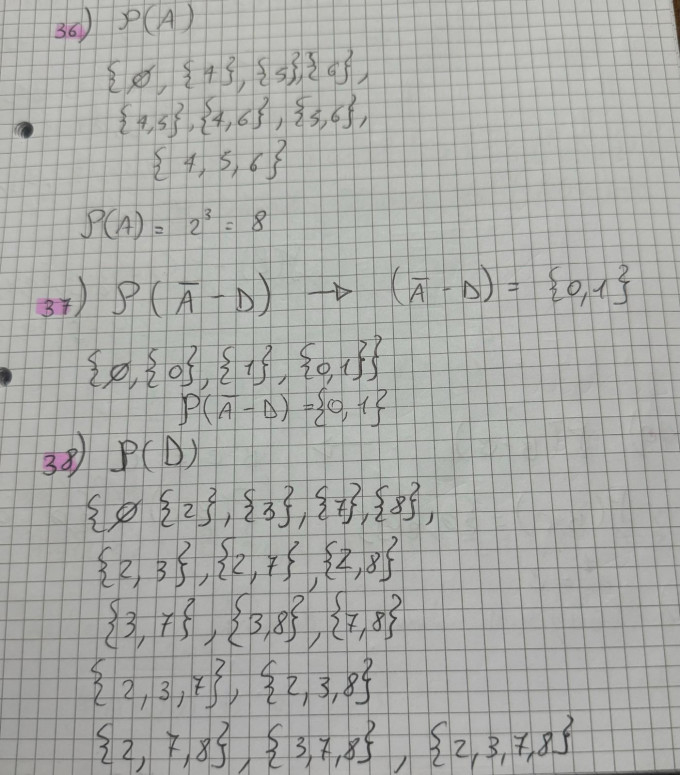 36) P(A)
{ ∅, {4}, {5}, {6},
{4,5}, {4,6}, {5,6},
{ 4, 5, 6}
P(A) = 2³ = 8
37) P( A̅ - D) → (A̅ - D) = {0,1}
{∅, {0}, {1}, {0,1}}
P(A̅ - D) = {0,1}
38) P(D)
{ ∅ {2}, {3}, {7}, {8},
{2, 3}, {2, 7}, {2,8}
{3, 7}, {3,8}, {7,8}
{ 2, 3, 7}, {2, 3, 8}
{2, 7,8}, {3,7,8}, {2,3,7,8}